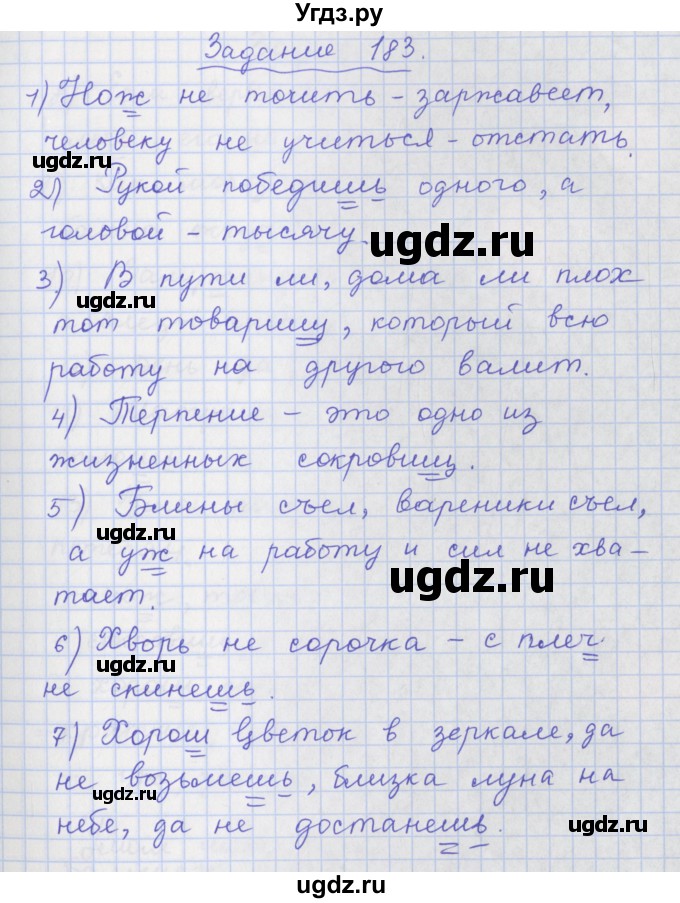 Угдз.ру
Задание 183.
1) Нож не точить - заржавеет,
человеку не учиться - отстать.
ugdz.ru
2) Рукой победишь одного, а
головой - тысячу.
ugdz.ru
3) В пути ли, дома ли плох
ugdz.ru
тот товарищ, который всю
работу на другого валит.
4) Терпение - это одно из
жизненных сокровищ.
5) Блины съел, вареники съел,
ugdz.ru
а уж на работу и сил не хва-
ugdz.ru
тает.
6) Хворь не сорочка - с плеч
ugdz.ru
не скинешь.
7) Хорош цветок в зеркале, да
не возьмешь, близка луна на
ugdz.ru
небе, да не достанешь.
ugdz.ru
ugdz.ru